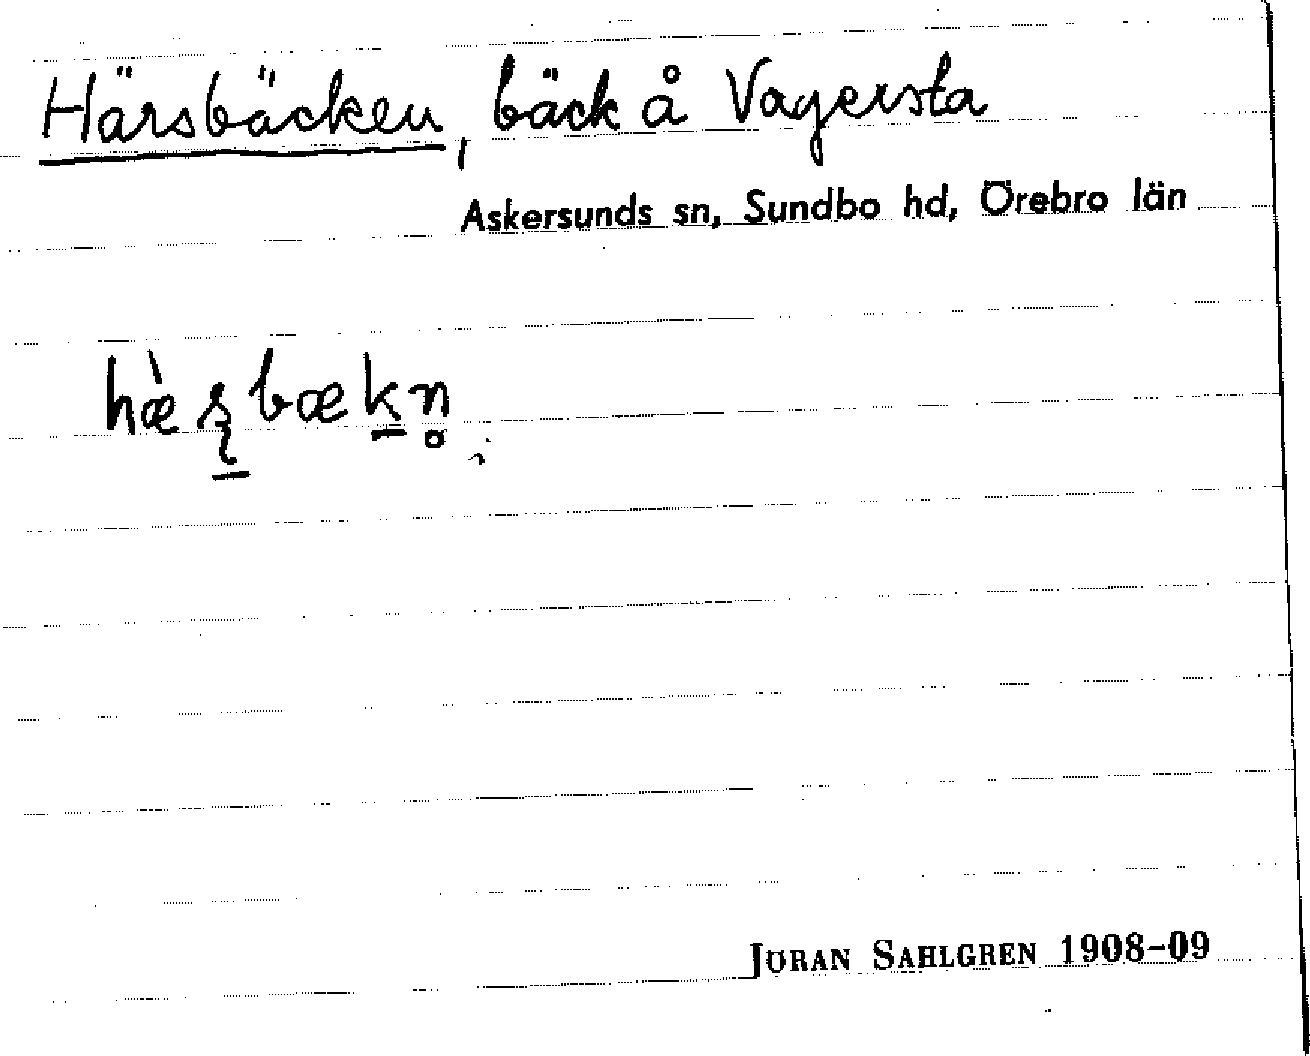 Härsbäcken, bäck å Vagersta
Askersunds sn, Sundbo hd, Örebro län
hæ̀ʂ̱bæḵn̥
JÖRAN SAHLGREN 1908-09